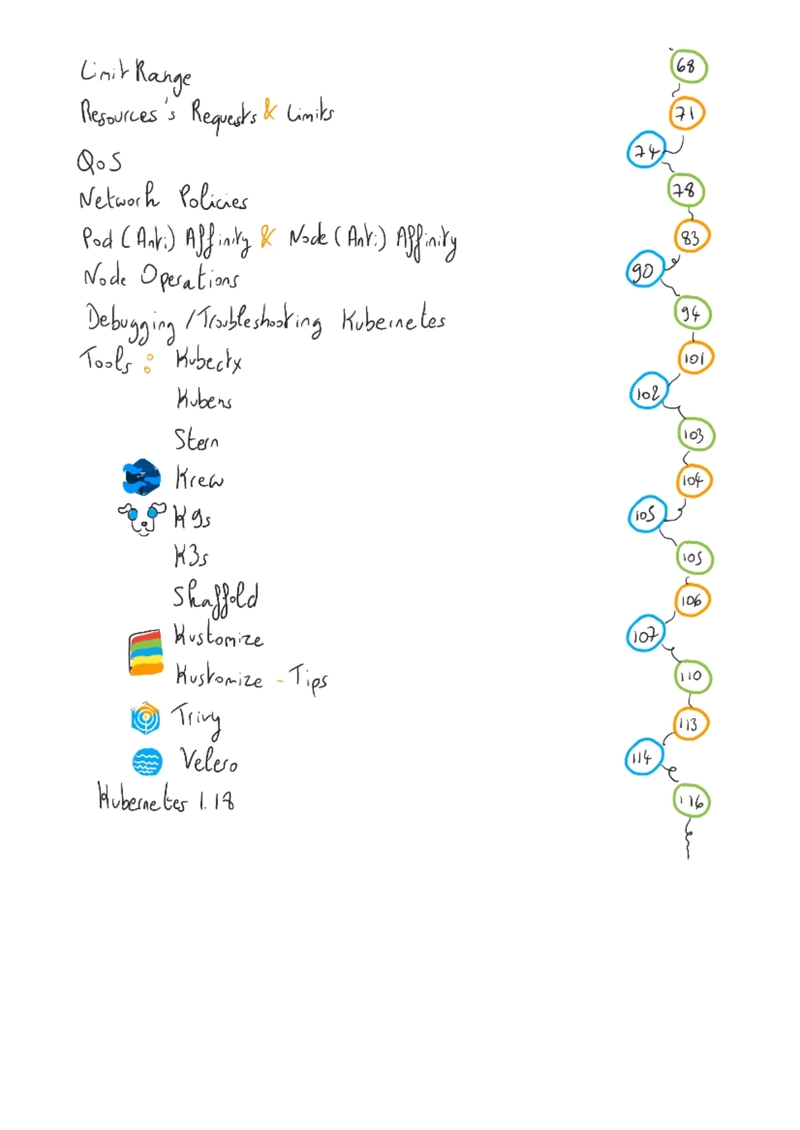 Limit Range 68
Resources's Requests & Limits 71
QoS 74
Network Policies 78
Pod (Anti) Affinity & Node (Anti) Affinity 83
Node Operations 90
Debugging /Troubleshooting Kubernetes 94
Tools : Kubectx 101
Kubens 102
Stern 103
Krew 104
K9s 105
K3s 105
Skaffold 106
Kustomize 107
Kustomize - Tips 110
Trivy 113
Velero 114
Kubernetes 1.18 116